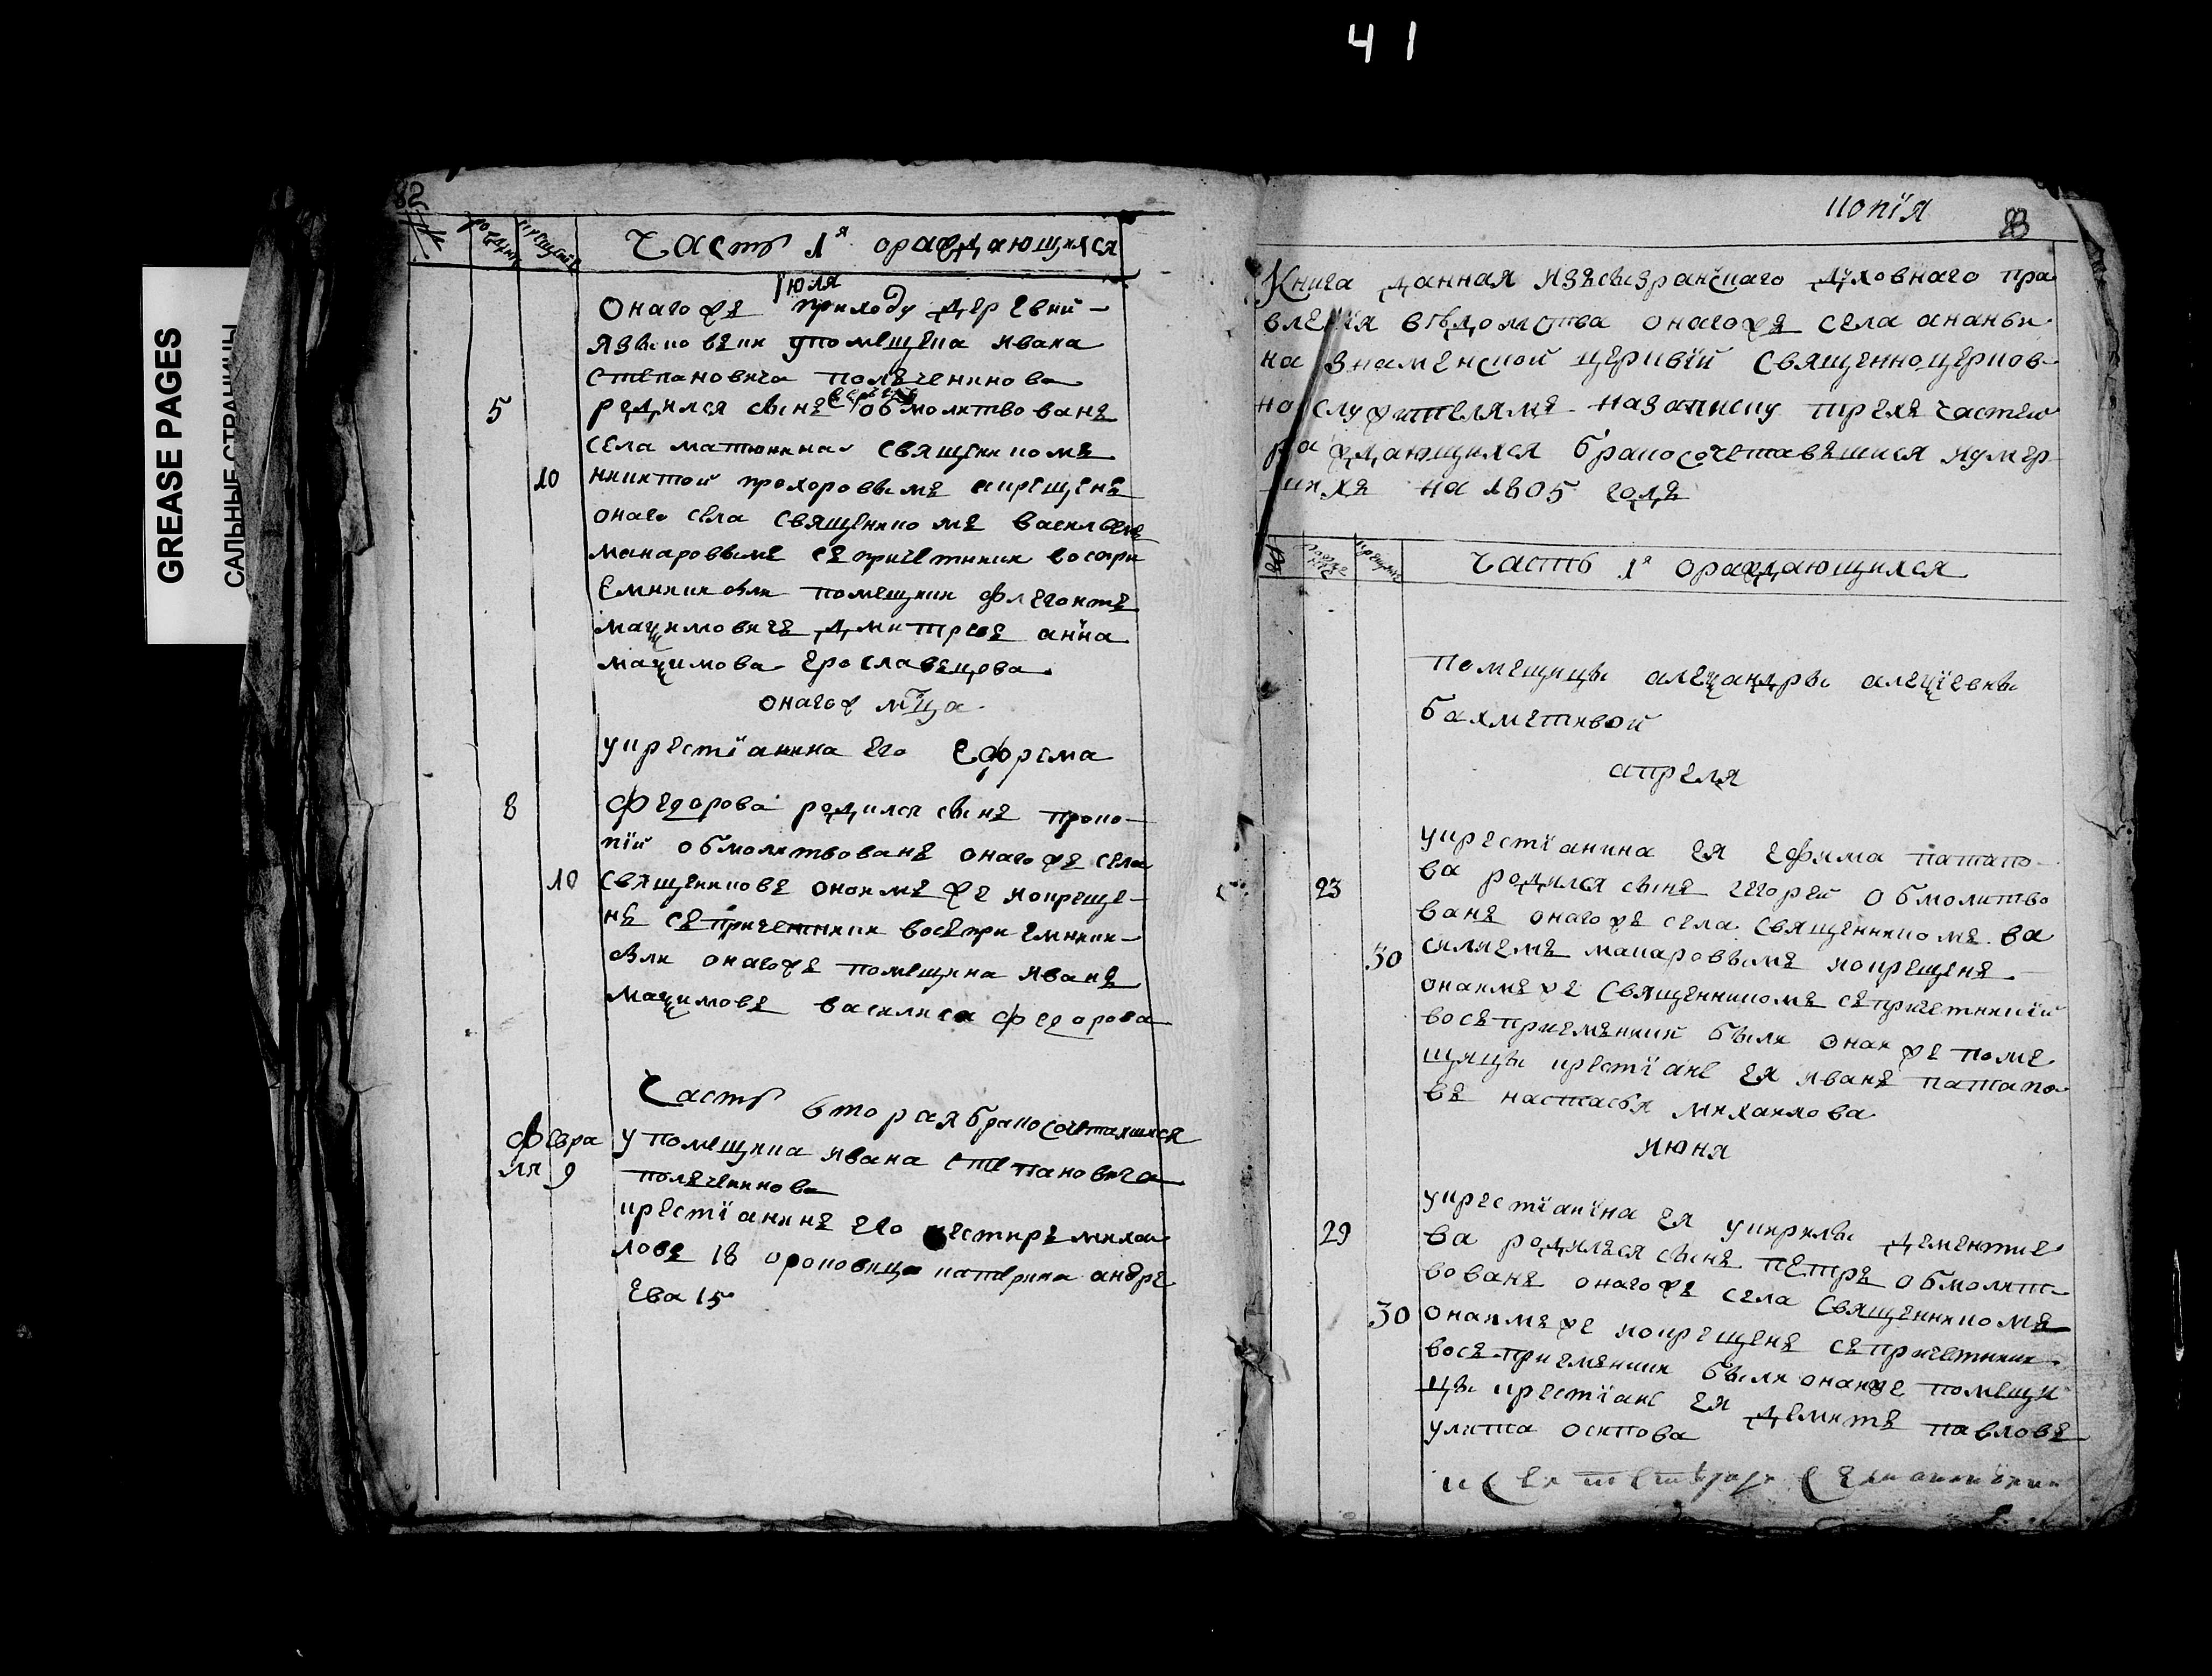 41
GREASE PAGES
САЛЬНЫЕ СТРАНИЦЫ
82
Часть 1я ораждающихся
Июля
Онагожъ приходу деревни
Языковъки упомещика ивана
степановича полъченинова
5 родился сынъ Сергей обмолитвованъ
села матюнина священикомъ
10 никитой прохоровымъ икрещенъ
онаго села священикомъ васильемъ
макаровымъ съпричетники восъпри
Емники были помещики Флегонтъ
мациновичъ дмитревъ анна
мацимова Ерославцова
онагож мца
укрестїанина Его Ефрема
8 Федорова родился сынъ проко
пїй обмолитвованъ онагожъ села
10 священиковъ онымъ же икреще
нъ съпричетники восъприемники
были онагожъ помещика иванъ
мацимовъ василиса федорова
Часть вторая бракосочетавшихся
Февра
ля 9
у помещика ивана степановича
полъченинова
крестїанинъ Его нестиръ михаи
ловъ 18 ороковица катерина андре
Ева 15
копїя
Книга данная изъсызранскаго духовнаго пра
вленїя вѣдомства онагожъ села ананьи
на знаменской церквїй священноцерков
но служителямъ назаписку трехъ частей
раждающихся бракосочетавъшихся иумер
шихъ на 1805 годъ
Часть 1я ораждающихся
помещицы алеѯандры алеѯїевны
бахметевой
апреля
укрестїанина Ея Ефима патапо
23 ва родился сынъ Егорей обмолитво
ванъ онагожъ села священникомъ ва
30 силиемъ макаровымъ икрещенъ
онымъ же священникомъ съпричетникїй
восъприемъники были оная же поме
щицы крестїане Ея иванъ патапо
въ настасья михаилова
июня
укрестїанина Ея укирилы дементие
29 ва родилъся сынъ петръ обмолит
вованъ онагожъ села священникомъ
30 онымъ же икрещенъ съпричетники
восъприемъники были онаяже помещи
цы крестїане Ея демитъ павловъ
улита осипова